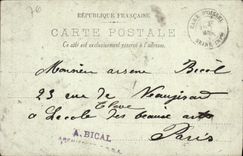 76
RÉPUBLIQUE FRANÇAISE
CARTE POSTALE
Ce côté est exclusivement réservé à l'adresse.
Monsieur arsene Bical
23 rue de Vaugirard
Eleve
a Lecole des beaux arts
Paris
A. BICAL